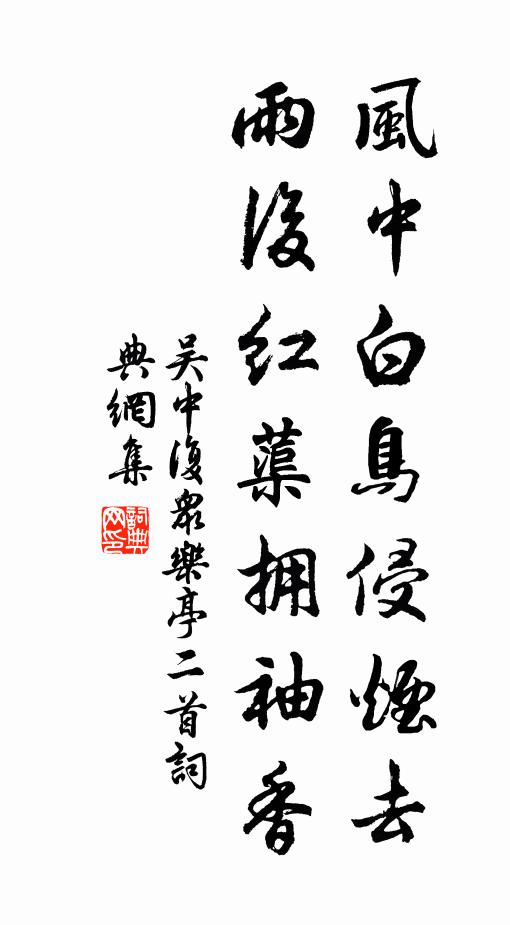 風中白鳥侵煙去
雨後紅蕖拥袖香
吴中復眾樂亭二首詞
典網集
詞典網印